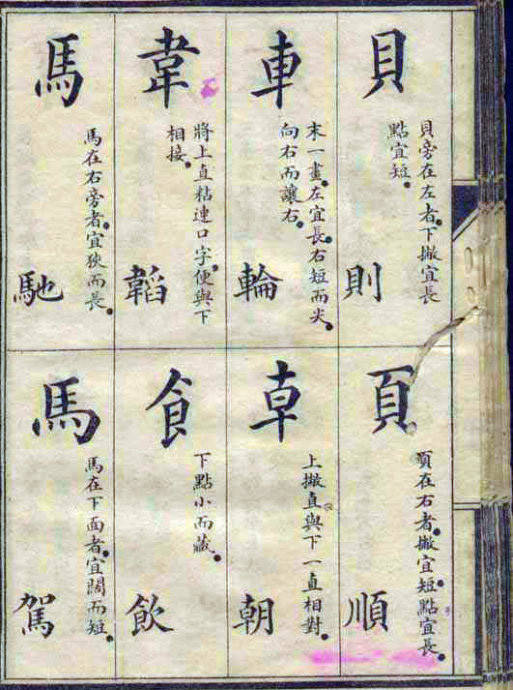 貝
貝旁在左者下撇宜長
點宜短
則
車
末一畫左宜長右短而尖
向右而讓右
輪
韋
將上直粘連口字便與下
相接
韜
馬
馬在右旁者宜狹而長
馳
頁
頁在右者撇宜短點宜長
順
卓
上撇直與下一直相對
朝
飠
下點小而藏
飲
馬
馬在下面者宜闊而短
駕